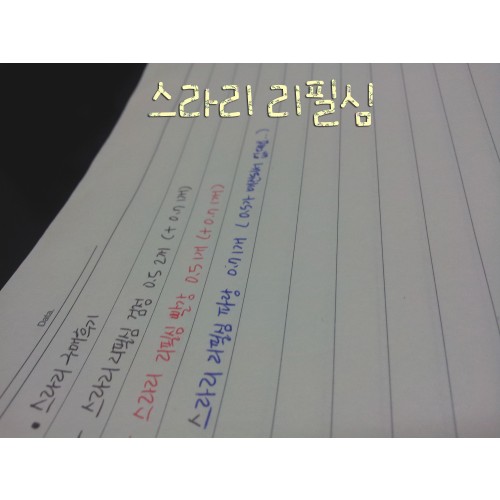 스라리 리필심
Date.
• 스라리 구매후기
스라리 리필심 검정 0.5 2개 (+ 0.7 1개)
스라리 리필심 빨강 0.5 1개 (+ 0.7 1개)
스라리 리필심 파랑 0.7 1개 ( 0.5